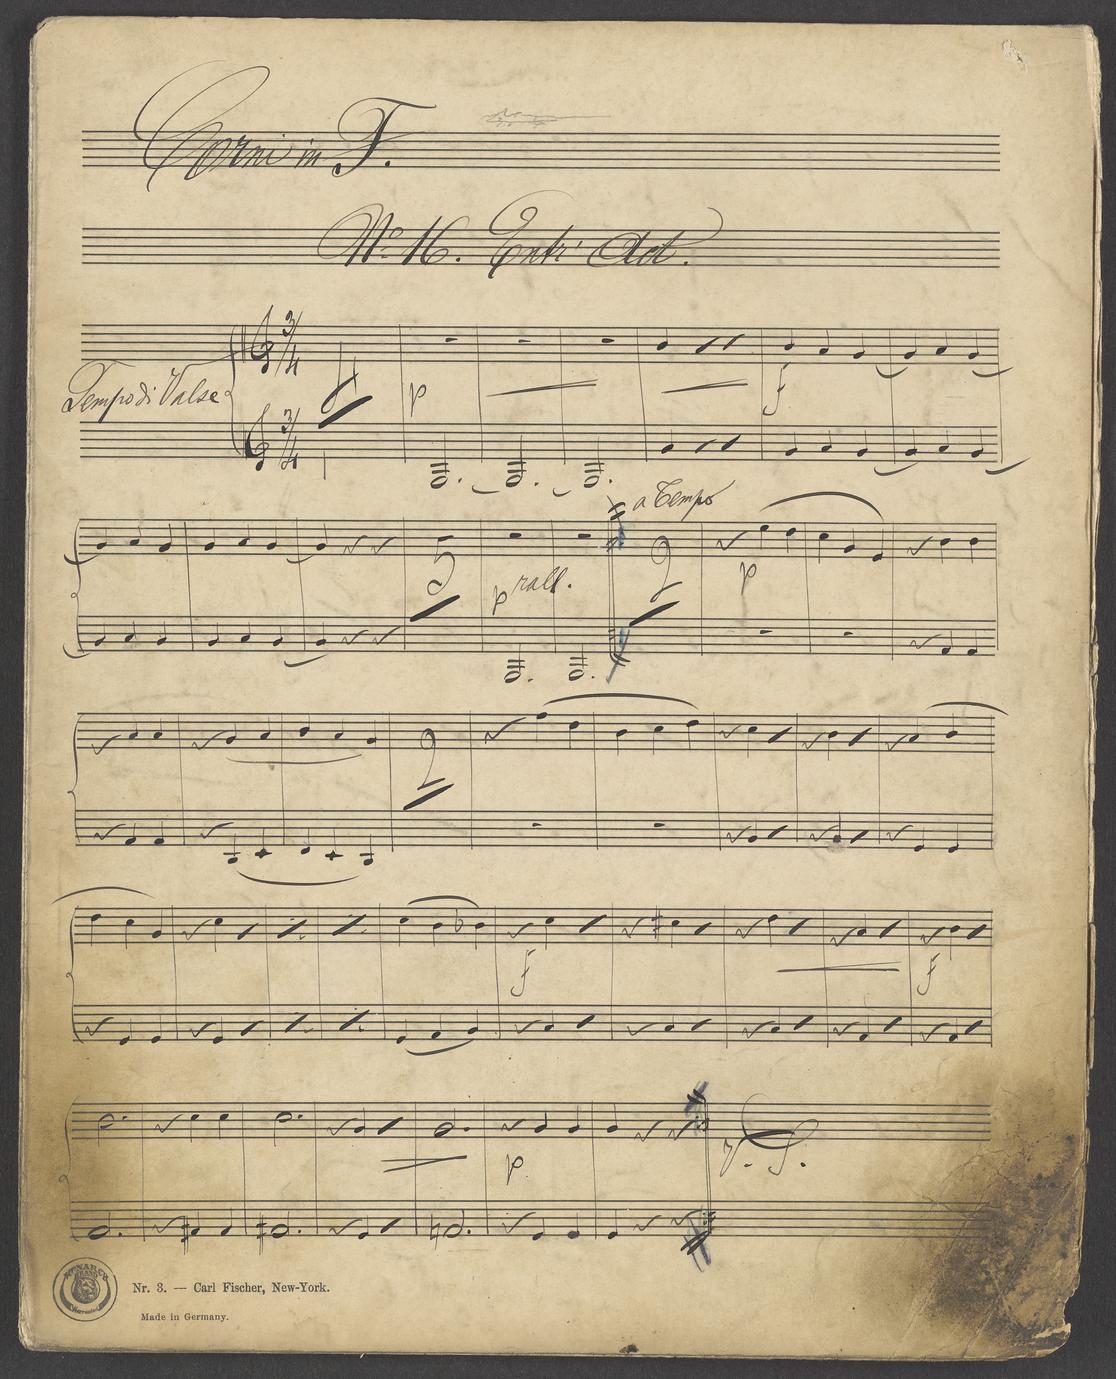 Corni in F.
No. 16. Entr' Act.
3/4
Tempo di Valse
4
p
f
3/4
a Tempo
5
p rall.
2
p
2
f
f
p
V. S.
MONARCH BRAND
Nr. 3. — Carl Fischer, New-York.
Made in Germany.